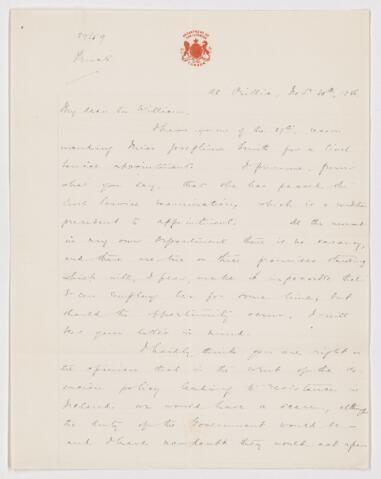 Private
My dear Sir William,
I have yours of the 27th, recom-
mending Miss Josephine Smith for a Civil
Service appointment. I presume, from
what you say, that she has passed the
Civil Service examination, which is a
precedent to appointment. At the moment
in my own Department there is no vacancy,
and there are two or three promises standing
which will, I fear, make it impossible that
I can employ her for some time, but
should the opportunity occur, I will
have your letter in mind.
I hardly think you are right in
the opinion that in the event of the co-
ercion policy leading to resistance in
Ireland, we would have a scare, altho
the duty of the Government would be—
and I have no doubt they would act upon